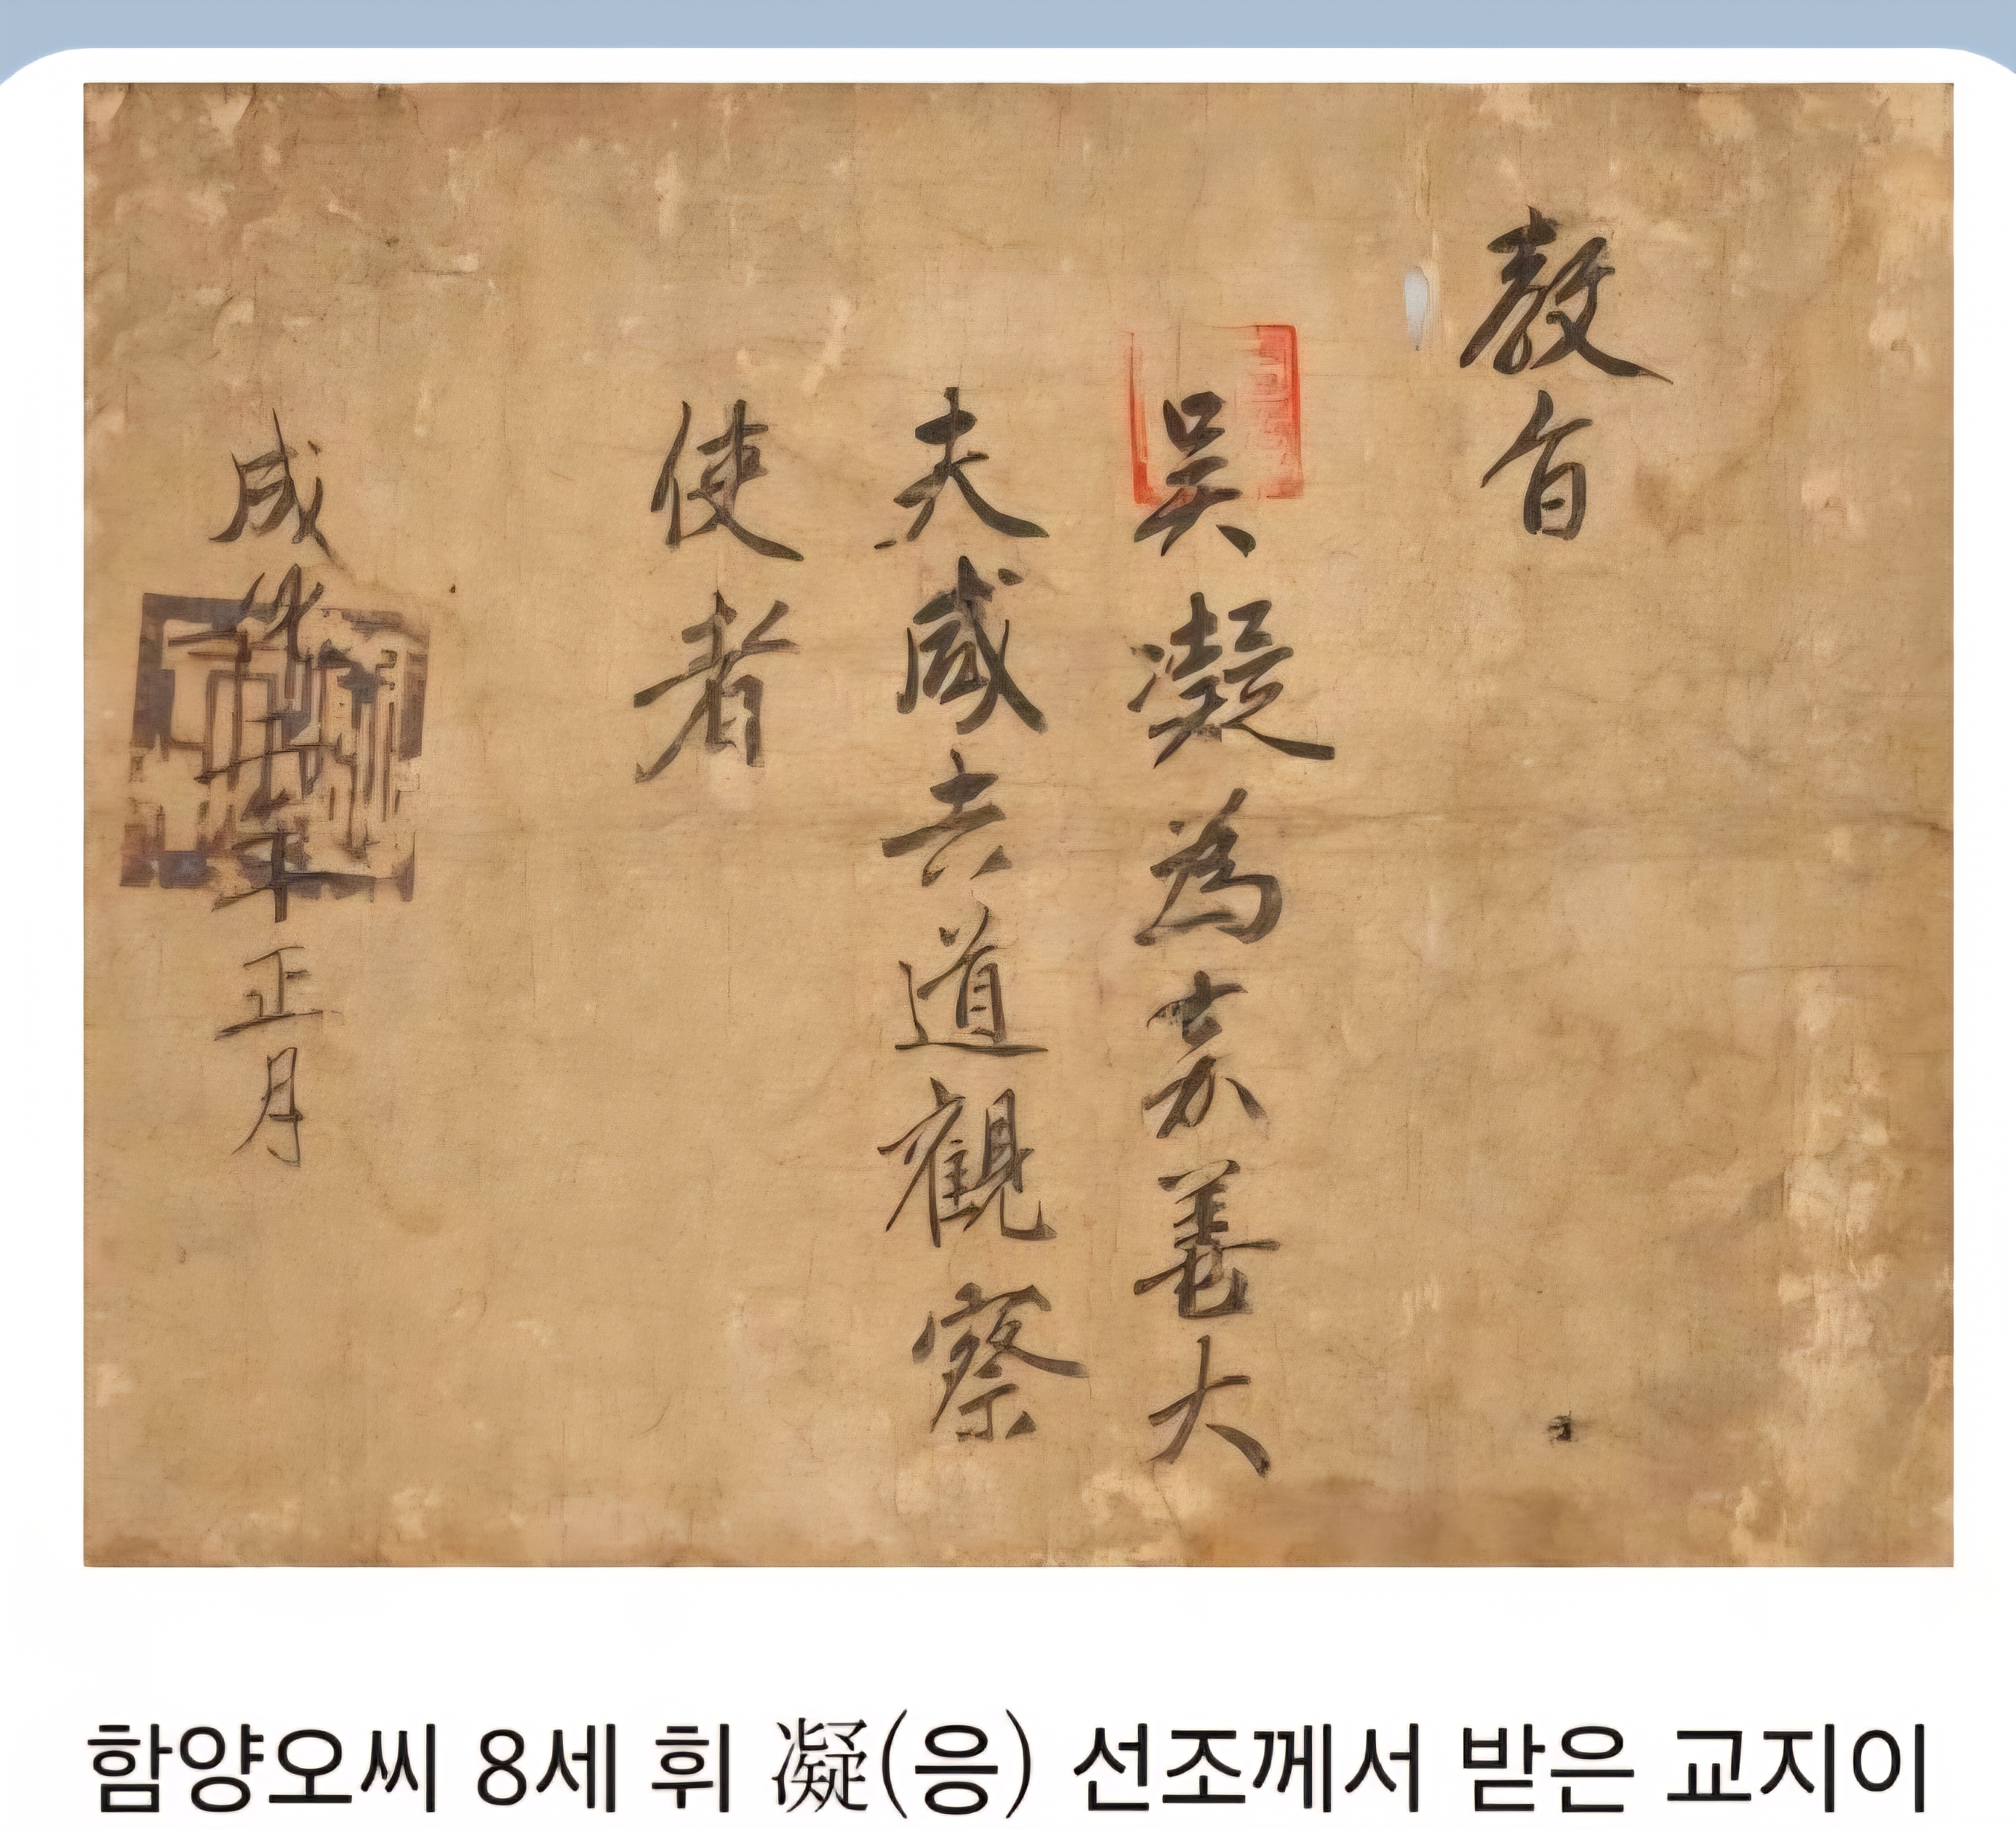 敎旨
吳凝為嘉善大
夫咸吉道觀察
使者
成化年正月
함양오씨 8세 휘 凝(응) 선조께서 받은 교지이